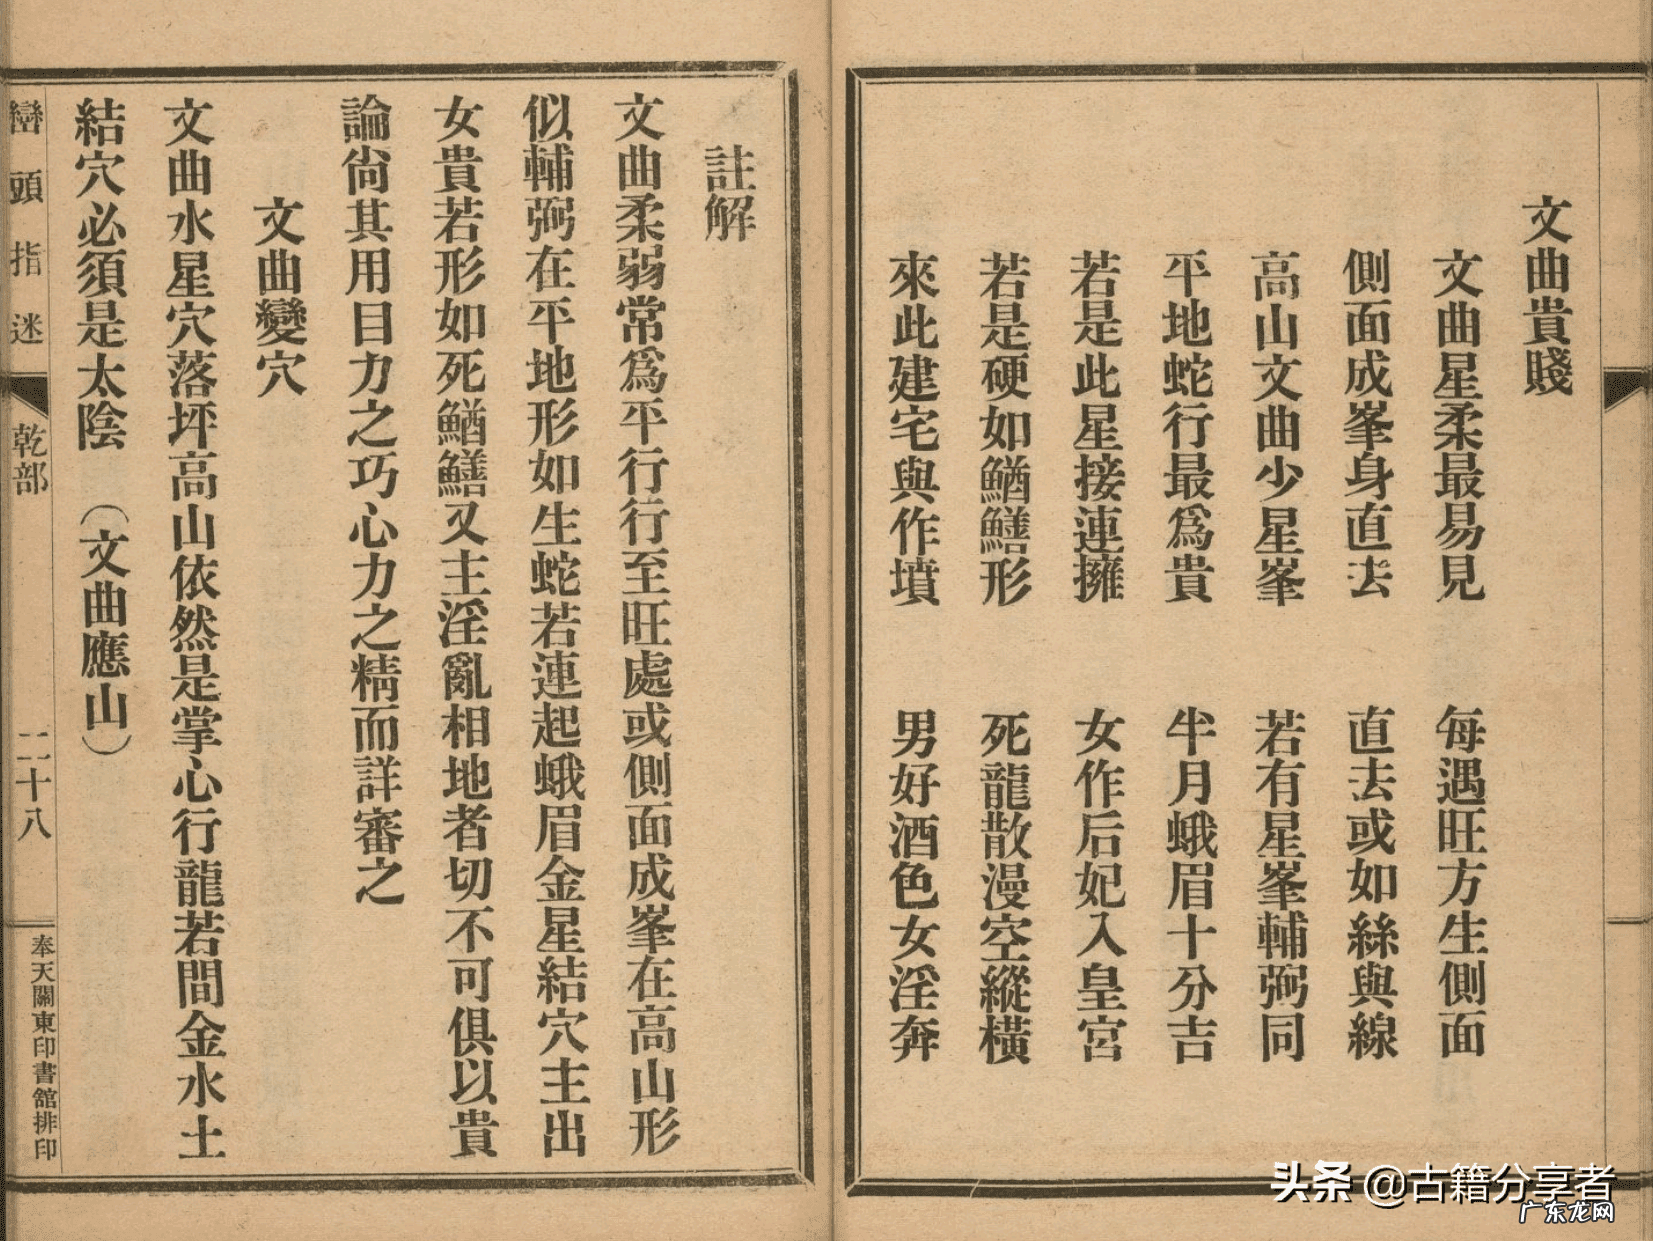 文曲貴賤
文曲星柔最易見　每遇旺方生側面
側面成峯身直去　直去或如絲與線
高山文曲少星峯　若有星峯輔弼同
平地蛇行最爲貴　半月蛾眉十分吉
若是此星接連擁　女作后妃入皇宮
若是硬如鰌鱔形　死龍散漫空縱橫
來此建宅與作墳　男好酒色女淫奔
註解
文曲柔弱常爲平行行至旺處或側面成峯在高山形
似輔弼在平地形如生蛇若連起蛾眉金星結穴主出
女貴若形如死鰌鱔又主淫亂相地者切不可俱以貴
論尙其用目力之巧心力之精而詳審之
文曲變穴
文曲水星穴落坪高山依然是掌心行龍若間金水土
結穴必須是太陰　（文曲應山）
巒頭指迷
乾部
二十八
奉天關東印書館排印
头条 @古籍分享者
广东龙网